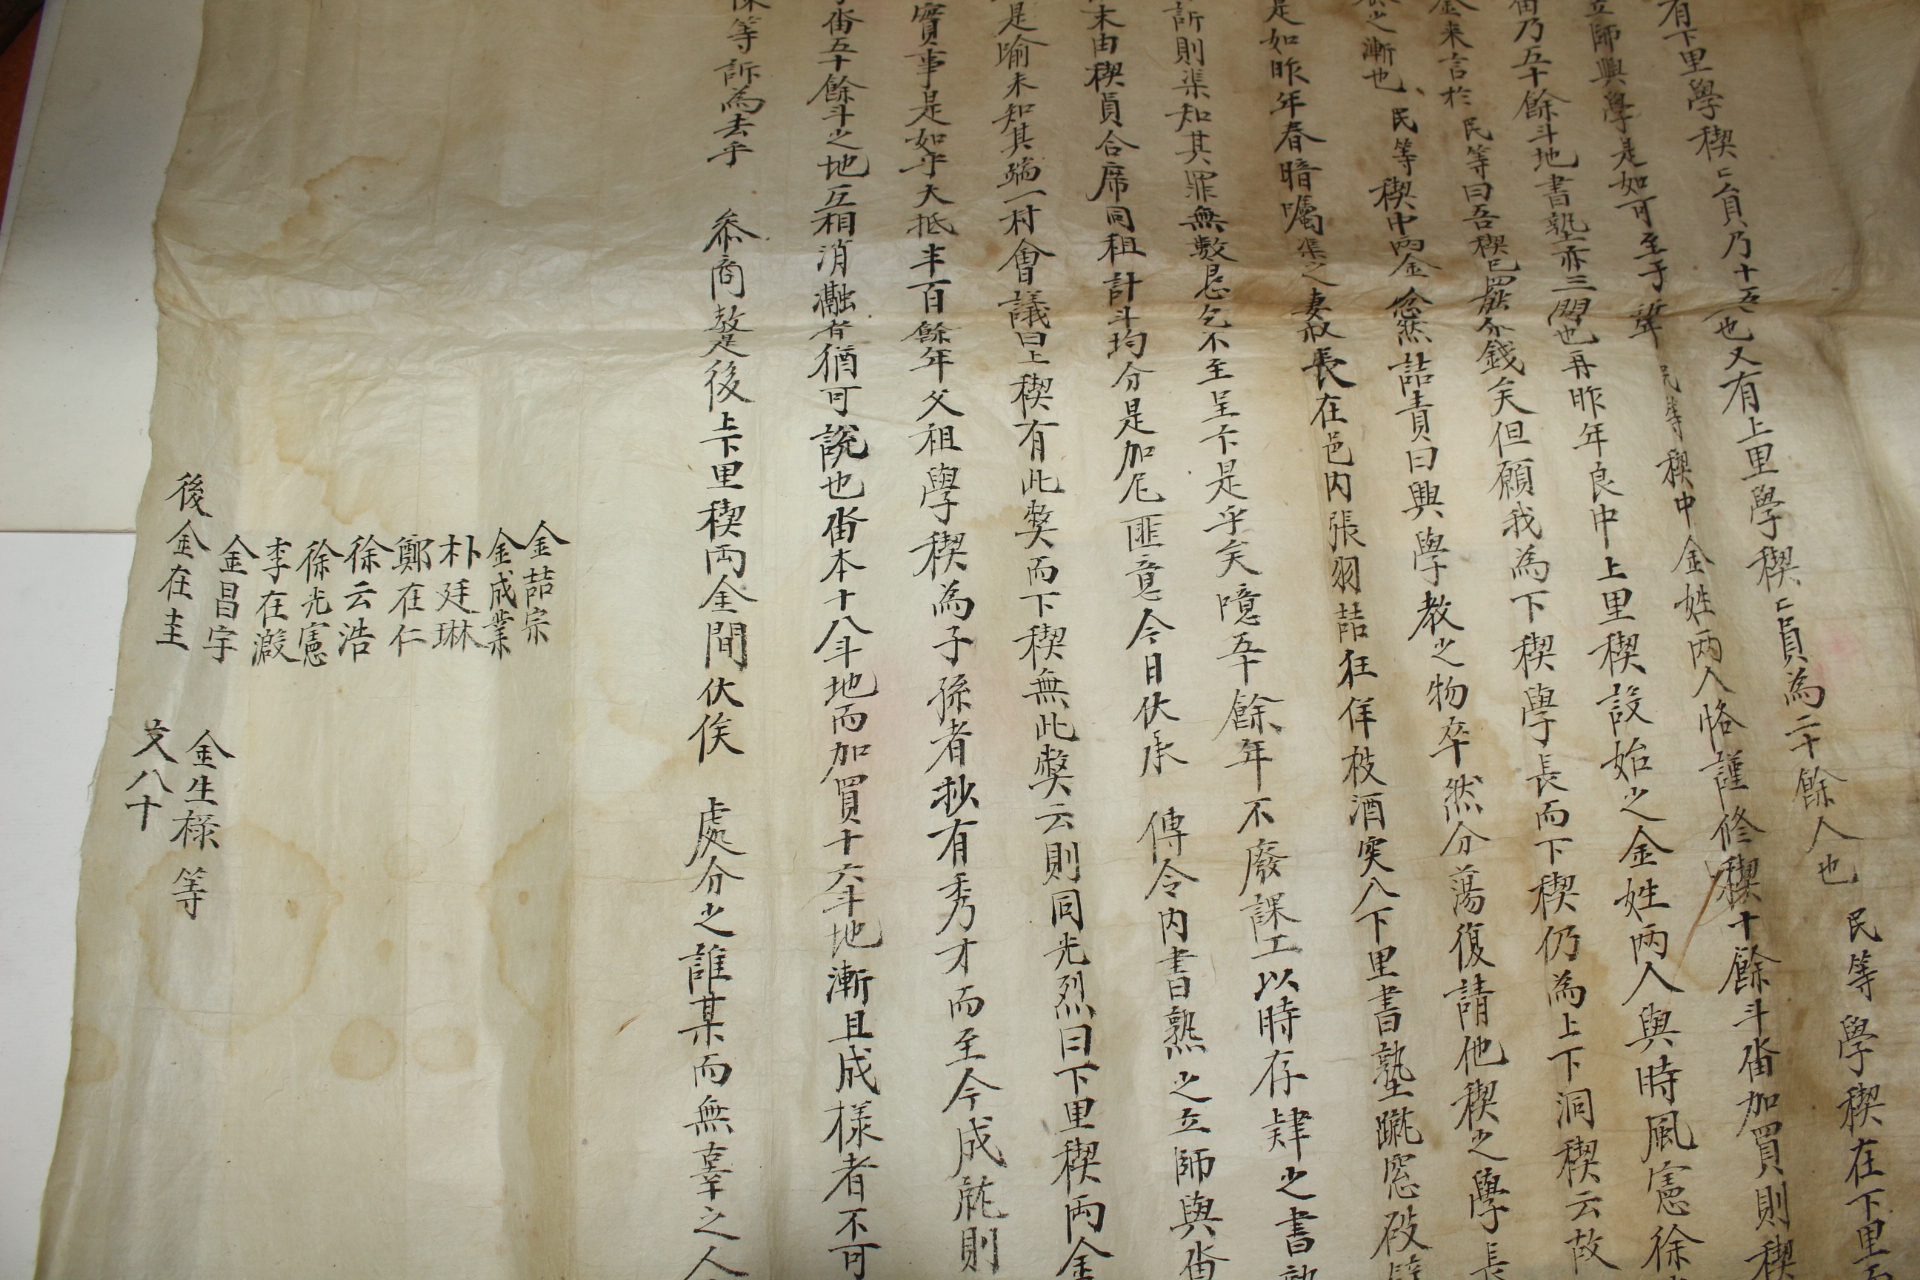 民等學稧在下里
有下里學稧〻員乃十五也又有上里學稧〻員為二十餘人也
立師興學是如可至于昨年民等稧中金姓兩人恪謹修稧十餘斗畓加買則稧
畓乃五十餘斗地書塾亦三間也再昨年良中上里稧設始之金姓兩人與時風憲徐
金来言於民等曰吾稧已罷分錢矣但願我為下稧學長而下稧仍為上下洞稧云故
之漸也民等稧中兩金忿然詰責曰興學教之物卒然分蕩復請他稧之學長
是如昨年春暗囑渠之妻叔長在邑內張羽喆狂佯被酒突入下里書塾蹴窓破壁
訴則渠知其罪無數恳乞不至呈卞是乎矣噫五十餘年不廢課工以時存肄之書塾
末由稧員合席同租計斗均分是加尼匪意今日伏承傳令內書塾之立師興畓
是喻未知其端一村會議曰上稧有此獘而下稧無此獘云則同光烈曰下里稧兩金
實事是如乎大抵半百餘年父祖學稧為子孫者抄有秀才而至今成龍則
畓五十餘斗之地互相消瀜者猶可說也畓本十八斗地而加買十六斗地漸且成樣者不可
等訴為去乎
叅商敎是後上下里稧兩金間伏俟處分之誰某而無辜之人
金喆宗
金成業
朴廷琳
鄭在仁
徐云浩
徐光憲
李在瀫
金昌宇
後金在圭
金生樣等
文八十